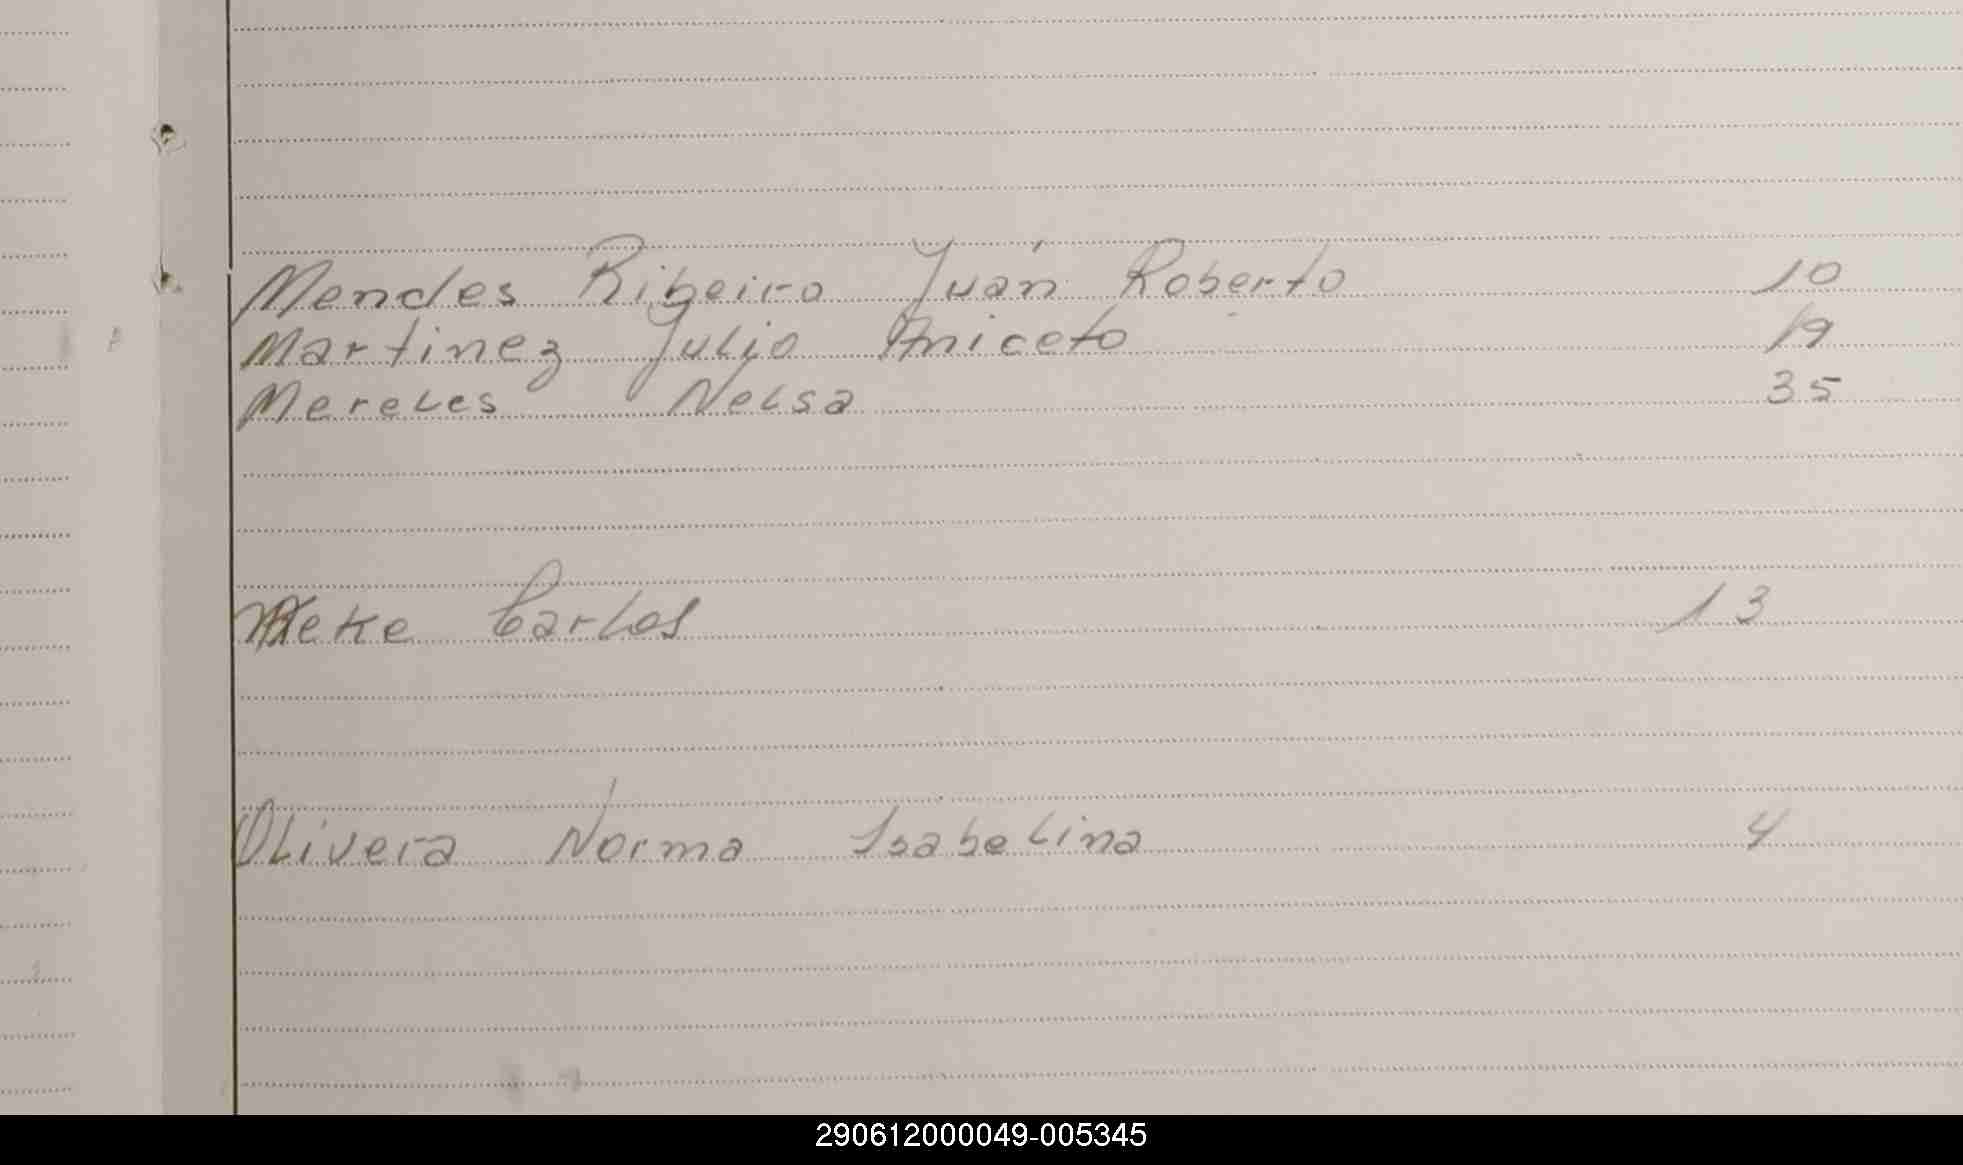 Mendes Ribeiro Juán Roberto 10
Martinez Julio Aniceto 19
Mereles Nelsa 35
Carlos 13
Olivera Norma Isabelina 4
290612000049-005345